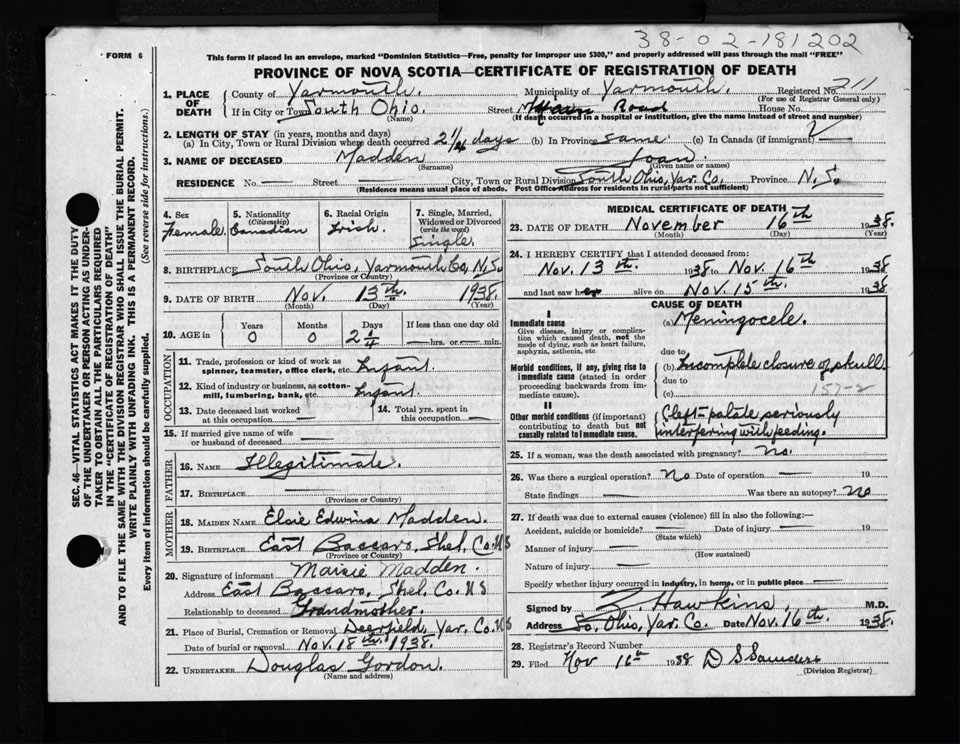 38-02-181202
FORM 6
This form if placed in an envelope, marked "Dominion Statistics—Free, penalty for improper use $300," and properly addressed will pass through the mail "FREE"
PROVINCE OF NOVA SCOTIA—CERTIFICATE OF REGISTRATION OF DEATH
1. PLACE OF DEATH { County of Yarmouth. Municipality of Yarmouth. Registered No. 211
(For use of Registrar General only)
If in City or Town South Ohio. Street Road House No.
(Name) (If death occurred in a hospital or institution, give the name instead of street and number)
2. LENGTH OF STAY (in years, months and days)
(a) In City, Town or Rural Division where death occurred 2 1/4 days (b) In Province same. (c) In Canada (if immigrant)
3. NAME OF DECEASED Madden Joan.
(Surname) (Given name or names)
RESIDENCE No. — Street — City, Town or Rural Division South Ohio, Yar. Co. Province N. S.
(Residence means usual place of abode. Post Office Address for residents in rural parts not sufficient)
4. Sex Female.
5. Nationality (Citizenship) Canadian
6. Racial Origin Irish.
7. Single, Married, Widowed or Divorced (write the word) Single.
8. BIRTHPLACE South Ohio, Yarmouth Co, N.S.
(Province or Country)
9. DATE OF BIRTH Nov. 13th. 1938.
(Month) (Day) (Year)
10. AGE in Years 0 Months 0 Days 2 1/4 If less than one day old —hrs. or —min.
OCCUPATION
11. Trade, profession or kind of work as spinner, teamster, office clerk, etc. Infant.
12. Kind of industry or business, as cotton-mill, lumbering, bank, etc. Infant.
13. Date deceased last worked at this occupation —
14. Total yrs. spent in this occupation —
15. If married give name of wife or husband of deceased —
FATHER
16. NAME Illegitimate.
17. BIRTHPLACE —
(Province or Country)
MOTHER
18. MAIDEN NAME Elsie Edwina Madden.
19. BIRTHPLACE East Baccaro, Shel. Co. N S
(Province or Country)
20. Signature of informant Maisie Madden.
Address East Baccaro, Shel. Co. N S
Relationship to deceased Grandmother.
21. Place of Burial, Cremation or Removal Deerfield, Yar. Co. N S
Date of burial or removal Nov. 18th. 1938.
22. UNDERTAKER Douglas Gordon.
(Name and address)
MEDICAL CERTIFICATE OF DEATH
23. DATE OF DEATH November 16th 1938.
(Month) (Day) (Year)
24. I HEREBY CERTIFY that I attended deceased from:
Nov. 13th. 1938 to Nov. 16th. 1938
and last saw her alive on Nov. 15th. 1938
CAUSE OF DEATH
I
Immediate cause
Give disease, injury or complication which caused death, not the mode of dying, such as heart failure, asphyxia, asthenia, etc
(a) Meningocele.
due to
Morbid conditions, if any, giving rise to immediate cause (stated in order proceeding backwards from immediate cause).
(b) Incomplete closure of skull.
due to
(c) 157-2
II
Other morbid conditions (if important) contributing to death but not causally related to immediate cause.
Cleft-palate seriously interfering with feeding.
25. If a woman, was the death associated with pregnancy? no.
26. Was there a surgical operation? — No Date of operation — 19
State findings — Was there an autopsy? no
27. If death was due to external causes (violence) fill in also the following:—
Accident, suicide or homicide? — Date of injury — 19
(State which)
Manner of injury —
(How sustained)
Nature of injury —
Specify whether injury occurred in industry, in home, or in public place —
Signed by Z. Hawkins, M.D.
Address So. Ohio, Yar. Co. Date Nov. 16th. 1938.
28. Registrar's Record Number
29. Filed Nov 16th 1938 D S Saunders
(Division Registrar)
SEC. 46—VITAL STATISTICS ACT MAKES IT THE DUTY
OF THE UNDERTAKER OR PERSON ACTING AS UNDER-
TAKER TO OBTAIN ALL THE PARTICULARS REQUIRED
IN THE "CERTIFICATE OF REGISTRATION OF DEATH"
AND TO FILE THE SAME WITH THE DIVISION REGISTRAR WHO SHALL ISSUE THE BURIAL PERMIT.
WRITE PLAINLY WITH UNFADING INK. THIS IS A PERMANENT RECORD.
Every item of information should be carefully supplied. (See reverse side for instructions.)